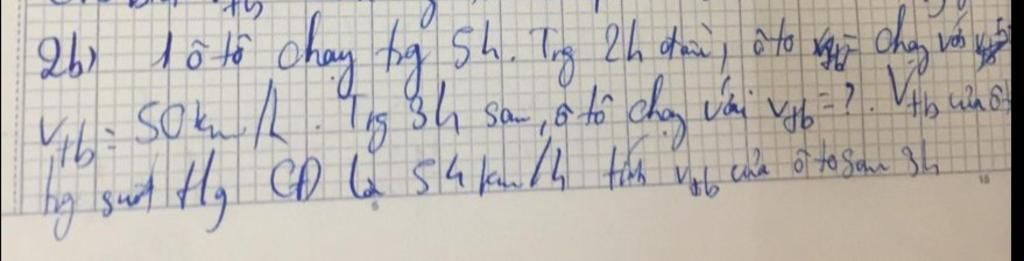 2b) 1 ô tô chạy tg 5h. Trg 2h đầu, ô tô chạy với
Vtb = 50km/h. Trg 3h sau, ô tô chạy với vtb = ?. Vtb của ô
tg suốt thg CĐ là 54km/h tính vtb của ô tô sau 3h